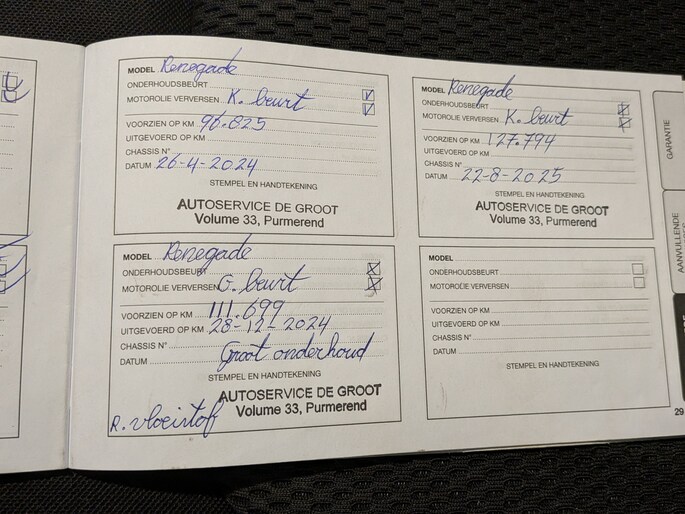 MODEL Renegade
ONDERHOUDSBEURT
MOTOROLIE VERVERSEN K. beurt
VOORZIEN OP KM 96.825
UITGEVOERD OP KM
CHASSIS N°
DATUM 26-4-2024
STEMPEL EN HANDTEKENING
AUTOSERVICE DE GROOT
Volume 33, Purmerend
MODEL Renegade
ONDERHOUDSBEURT
MOTOROLIE VERVERSEN G. beurt
VOORZIEN OP KM 111.699
UITGEVOERD OP KM 28-12-2024
CHASSIS N°
DATUM Groot onderhoud
STEMPEL EN HANDTEKENING
AUTOSERVICE DE GROOT
Volume 33, Purmerend
R. vloeistof
MODEL Renegade
ONDERHOUDSBEURT
MOTOROLIE VERVERSEN K. beurt
VOORZIEN OP KM 127.794
UITGEVOERD OP KM
CHASSIS N°
DATUM 22-8-2025
STEMPEL EN HANDTEKENING
AUTOSERVICE DE GROOT
Volume 33, Purmerend
MODEL
ONDERHOUDSBEURT
MOTOROLIE VERVERSEN
VOORZIEN OP KM
UITGEVOERD OP KM
CHASSIS N°
DATUM
STEMPEL EN HANDTEKENING
GARANTIE
AANVULLENDE
29